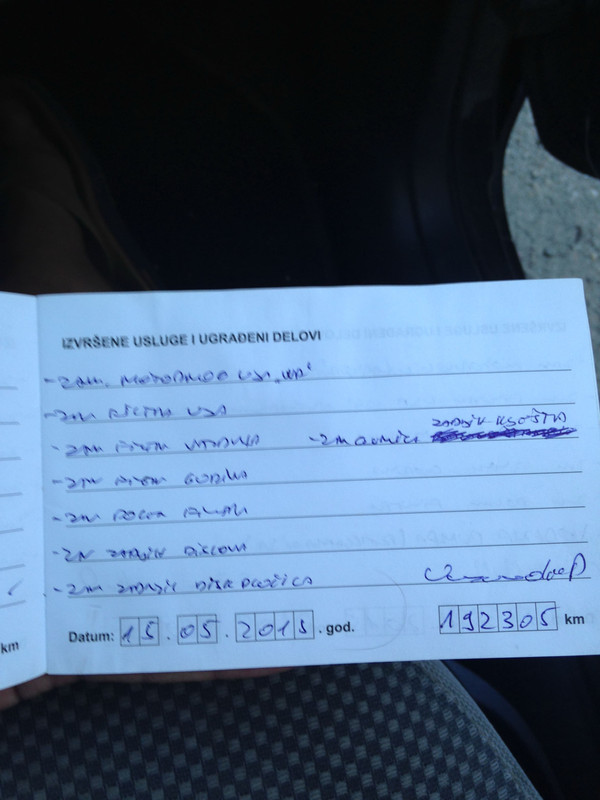 IZVRŠENE USLUGE I UGRAĐENI DELOVI
-ZAM. MOTORNOG ULJA
-ZAM FILTRA ULJA
-ZAM FILTRA VAZDUHA -ZAM ZADNJIH
-ZAM FILTRA GORIVA
-ZAM POLEN FILTRA
-ZAM ZADNJIH DISKOVA
-ZAM ZADNJIH DISK PLOČICA
Datum: 15.05.2015.god. 192305 km
km